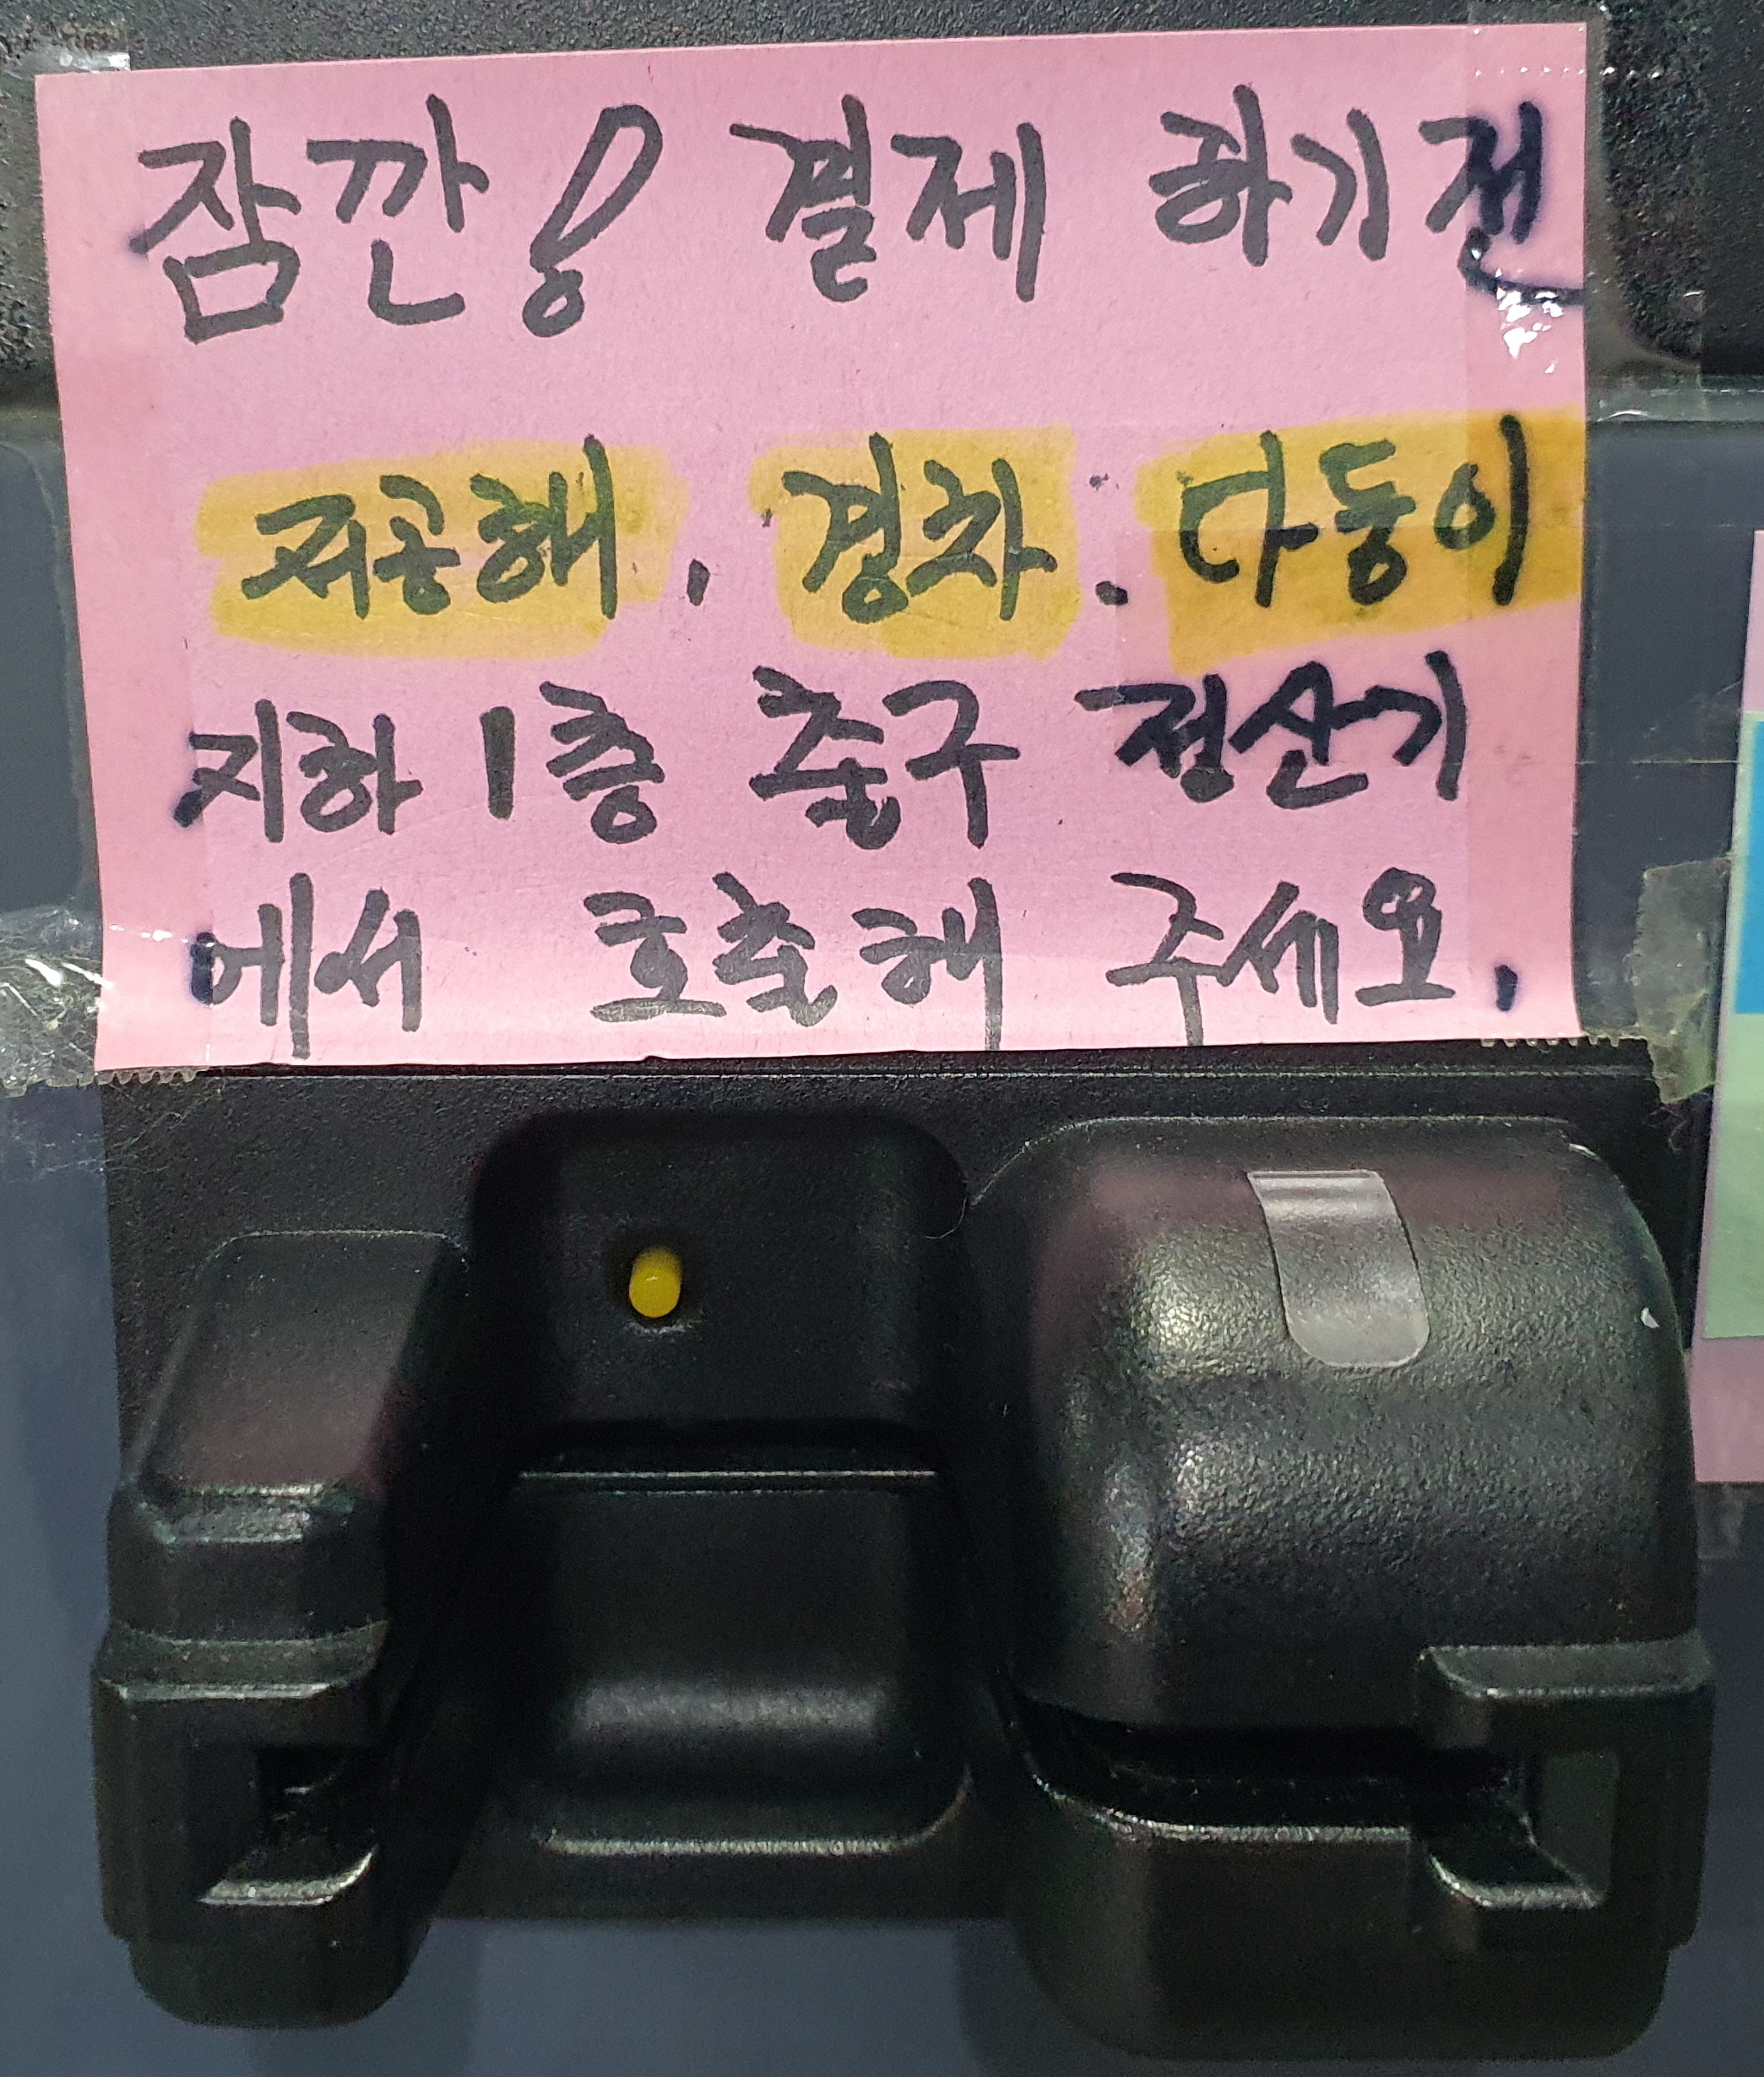 잠깐! 결제 하기전
저공해, 경차. 다둥이
지하 1층 출구 정산기
에서 호출해 주세요.